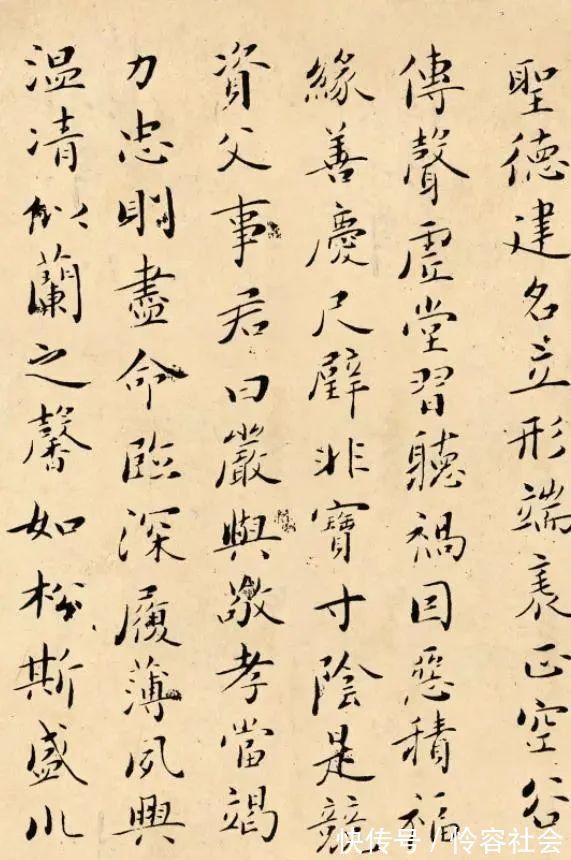 聖德建名立形端表正空谷
傳聲虛堂習聽禍因惡積福
緣善慶尺璧非寶寸陰是競
資父事君曰嚴與敬孝當竭
力忠則盡命臨深履薄夙興
温清似蘭之馨如松斯盛川
快传号/伶容社会